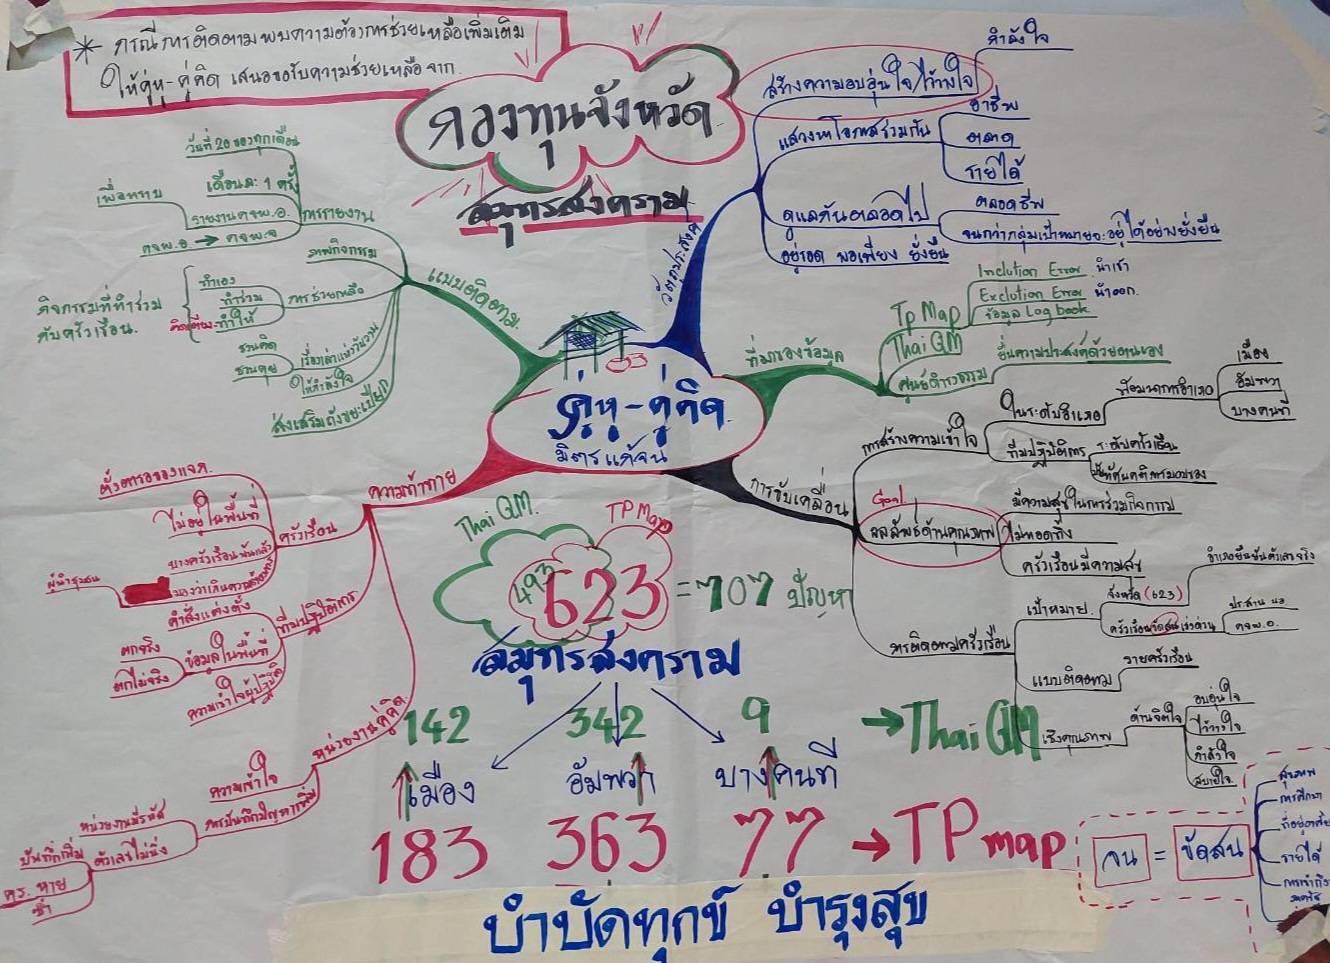 * กรณีการติดตามพบความต้องการช่วยเหลือเพิ่มเติม
ให้คู่หู-คู่คิด เสนอขอรับความช่วยเหลือจาก
กองทุนจังหวัด
สมุทรสงคราม
วัตถุประสงค์
สร้างความอบอุ่นใจ/ไว้วางใจ
กำลังใจ
แสวงหาโอกาสร่วมกัน
อาชีพ
ตลาด
รายได้
ดูแลกันตลอดไป
ตลอดชีพ
จนกว่ากลุ่มเป้าหมายจะอยู่ได้อย่างยั่งยืน
อยู่รอด พอเพียง ยั่งยืน
แบบติดตาม
การรายงาน
วันที่ 20 ของทุกเดือน
เดือนละ 1 ครั้ง
รายงาน ศจพ.อ.
เพื่อทราบ
ศจพ.อ. → ศจพ.จ
ภาพกิจกรรม
การช่วยเหลือ
ทำเอง
ทำร่วม
ทำให้
กิจกรรมที่ทำร่วม
กับครัวเรือน.
ชวนคิด
ชวนคุย
ให้กำลังใจ
ส่งเสริมถังขยะเปียก
ที่มาของข้อมูล
Tp Map
Inclution Error นำเข้า
Exclution Error นำออก.
ข้อมูล Log book
Thai QM
ศูนย์ดำรงธรรม
ยื่นความประสงค์ด้วยตนเอง
คู่หู-คู่คิด
มิตรแก้จน
การขับเคลื่อน
การสร้างความเข้าใจ
ในระดับอำเภอ
พัฒนาการอำเภอ
เมือง
อัมพวา
บางคนที
ทีมปฏิบัติการ
ระดับครัวเรือน
Goal
ผลลัพธ์ด้านคุณภาพ
มีความสุขในการร่วมกิจกรรม
ไม่ทอดทิ้ง
ครัวเรือนมีความสุข
การติดตามครัวเรือน
เป้าหมาย
จังหวัด (623)
อำเภอยืนยันตัวเลขจริง
ครัวเรือนขัดสนเร่งด่วน
ประสาน นอ
ศจพ.อ.
แบบติดตาม
รายครัวเรือน
เชิงคุณภาพ
ด้านจิตใจ
อบอุ่นใจ
ไว้วางใจ
กำลังใจ
สบายใจ
ความท้าทาย
ครัวเรือน
ไม่อยู่ในพื้นที่
บางครัวเรือนพ้นแล้ว
ผู้นำชุมชน
ทีมปฏิบัติการ
คำสั่งแต่งตั้ง
ข้อมูลในพื้นที่
ตกจริง
ตกไม่จริง
ความเข้าใจผู้ปฏิบัติ
หน่วยงานคู่คิด
ความเข้าใจ
การบันทึกปัญหาเพิ่ม
หน่วยงานมีรหัส
ตัวเลขไม่นิ่ง
บันทึกเพิ่ม
คร. หาย
ซ้ำ
Thai QM.
TP Map
493
623 = 707 ปัญหา
สมุทรสงคราม
142 342 9 → Thai QM
เมือง อัมพวา บางคนที
183 363 77 → TP map
จน = ขัดสน
สุขภาพ
การศึกษา
ที่อยู่อาศัย
รายได้
การเข้าถึง
บำบัดทุกข์ บำรุงสุข